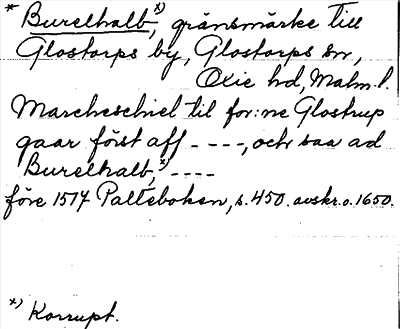 * Burelhalb,*) gränsmärke till
Glostorps by, Glostorps sn,
Oxie hd, Malm. l.
Marcheschiel til for:ne Glostrup
gaar först aff - - - -, och saa ad
Burelhalb,*) - - - -
före 1517 Palteboken, s. 450. avskr. o. 1650.
*) Korrupt.